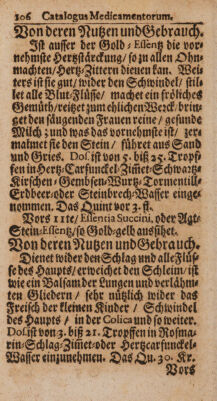 106 Catalogus Medicamentorum.
Von deren Nutzen und Gebrauch.
Ist ausser der Gold-Essentz die vor-
nehmste Hertzstärckung/ so zu allen Ohn-
machten/Hertz-Zittern dienen kan. Wei-
ters ist sie gut/ wider den Schwindel/ stil-
let alle Blut-Flüsse/ machet ein fröliches
Gemüth/ reitzet zum ehlichen Werck/ brin-
get den säugenden Frauen reine/ gesunde
Milch; und was das vornehmste ist/ zer-
malmet sie den Stein/ führet aus Sand
und Gries. Dos. ist von 5. biß 25. Tropf-
fen in Hertz-Carfunckel-Zimet-Schwartz-
Kirschen-Gembsen-Wurtz-Tormentill-
Erdbeer-oder Steinbrech-Wasser einge-
nommen. Das Quint vor 3. st.
Vors 11te/ Essentia Succini, oder Agt-
Stein-Essentz/ so Gold-gelb aussihet.
Von deren Nutzen und Gebrauch.
Dienet wider den Schlag und alle Flüs-
se des Haupts/ erweichet den Schleim/ ist
wie ein Balsam der Lungen und verlähm-
ten Gliedern/ sehr nützlich wider das
Freisch der kleinen Kinder/ Schwindel
des Haupts/ in der Colica und so weiter.
Dos. ist von 3. biß 21. Tropffen in Rosma-
rin-Schlag-Zimet-oder Hertzcarfunckel-
Wasser einzunehmen. Das Qu. 30. Kr.
Vors